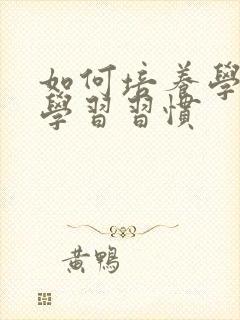 如何培養學
學習習慣
黃鴨